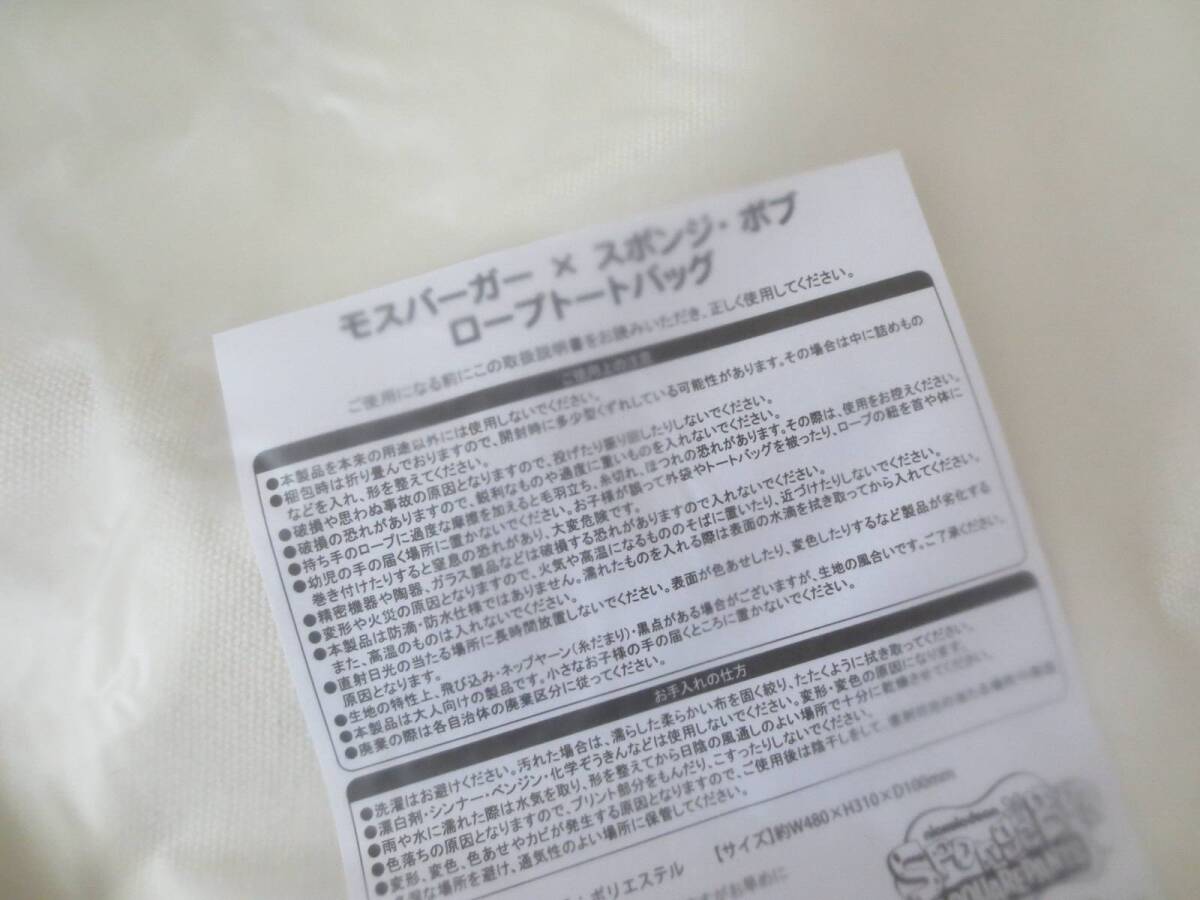 モスバーガー × スポンジ・ボブ
ロープトートバッグ
ご使用になる前にこの取扱説明書をお読みいただき、正しく使用してください。
ご使用上の注意
●本製品を本来の用途以外には使用しないでください。
●梱包時は折り畳んでおりますので、開封時に多少型くずれしている可能性があります。その場合は中に詰めもの
などを入れ、形を整えてください。
●破損や思わぬ事故の原因となりますので、投げたり振り回したりしないでください。
●破損の恐れがありますので、鋭利なものや過度に重いものを入れないでください。
●持ち手のロープに過度な摩擦を加えると毛羽立ち、糸切れ、ほつれの恐れがあります。その際は、使用をお控えください。
●幼児の手の届く場所に置かないでください。お子様が誤って外袋やトートバッグを被ったり、ロープの紐を首や体に
巻き付けたりすると窒息の恐れがあり、大変危険です。
●精密機器や陶器、ガラス製品などは破損する恐れがありますので入れないでください。
●変形や火災の原因となりますので、火気や高温になるもののそばに置いたり、近づけたりしないでください。
●本製品は防滴・防水仕様ではありません。濡れたものを入れる際は表面の水滴を拭き取ってから入れてください。
また、高温のものは入れないでください。
●直射日光の当たる場所に長時間放置しないでください。表面が色あせしたり、変色したりするなど製品が劣化する
原因となります。
●生地の特性上、飛び込み・ネップヤーン(糸だまり)・黒点がある場合がございますが、生地の風合いです。ご了承ください。
●本製品は大人向けの製品です。小さなお子様の手の届くところに置かないでください。
●廃棄の際は各自治体の廃棄区分に従ってください。
お手入れの仕方
●洗濯はお避けください。汚れた場合は、濡らした柔らかい布を固く絞り、たたくように拭き取ってください。
●漂白剤・シンナー・ベンジン・化学ぞうきんなどは使用しないでください。変形・変色の原因になります。
●雨や水に濡れた際は水気を取り、形を整えてから日陰の風通しのよい場所で十分に乾燥させてください。
●色落ちの原因となりますので、プリント部分をもんだり、こすったりしないでください。
●変形、変色、色あせやカビが発生する原因となりますので、ご使用後は陰干しをして、直射日光の当たる場所や
な場所を避け、通気性のよい場所に保管してください。
ポリエステル 【サイズ】約W480×H310×D100mm
nickelodeon
SPONGEBOB
SQUAREPANTS